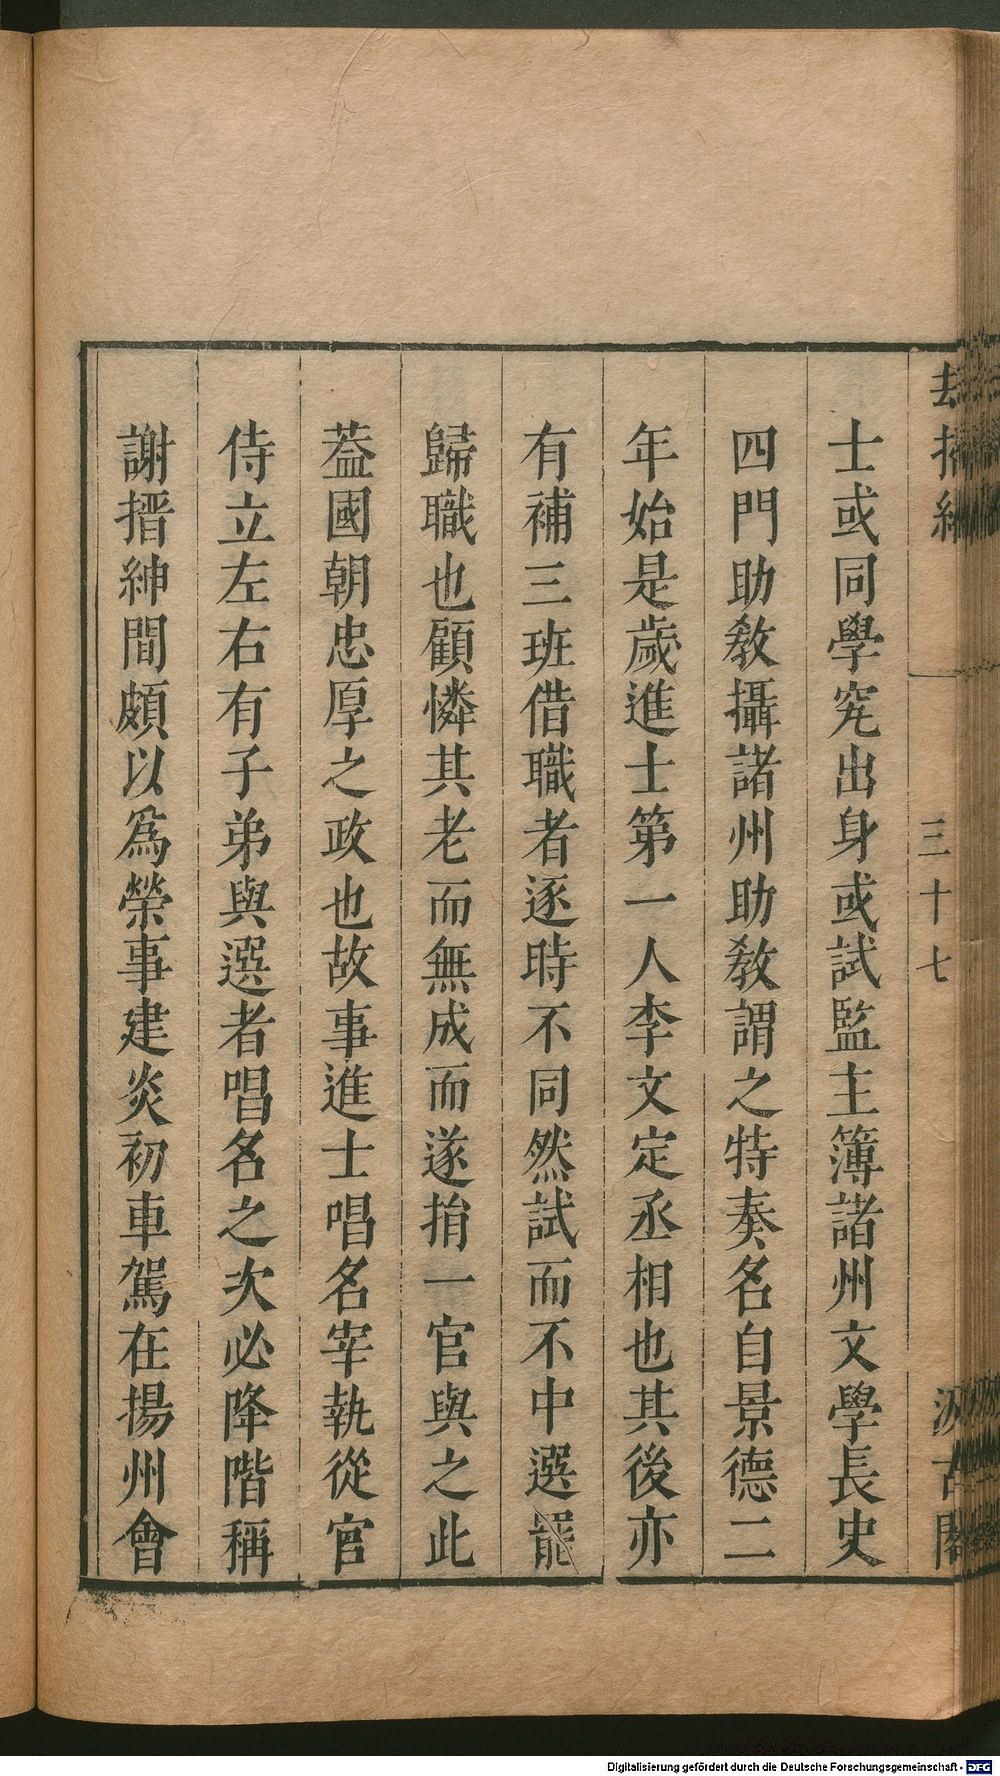 士或同學究出身或試監主簿諸州文學長史
四門助敎攝諸州助敎謂之特奏名自景德二
年始是歲進士第一人李文定丞相也其後亦
有補三班借職者逐時不同然試而不中選罷
歸職也顧憐其老而無成而遂捐一官與之此
葢國朝忠厚之政也故事進士唱名宰執從官
侍立左右有子弟與選者唱名之次必降階稱
謝搢紳間頗以爲榮事建炎初車駕在揚州會
三十七
汲古閣
Digitalisierung gefördert durch die Deutsche Forschungsgemeinschaft - DFG